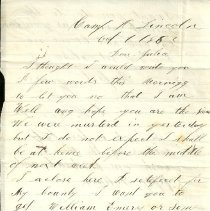 Camp A Lincoln
Oct
Dear Julia
I thought I would write you
a few words this morning
to let you no that I am
Well and hope you are the same
We were musterd in yesterday
but I do not expect I shall
be at home before the middle
of next week
I inclose here
My bounty I want you to
get William Emery or some